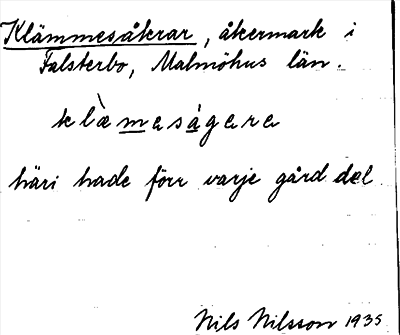 Klämmesåkrar, åkermark i
Falsterbo, Malmöhus län.
klæ̀mesågara
häri hade förr varje gård del
Nils Nilsson 1935